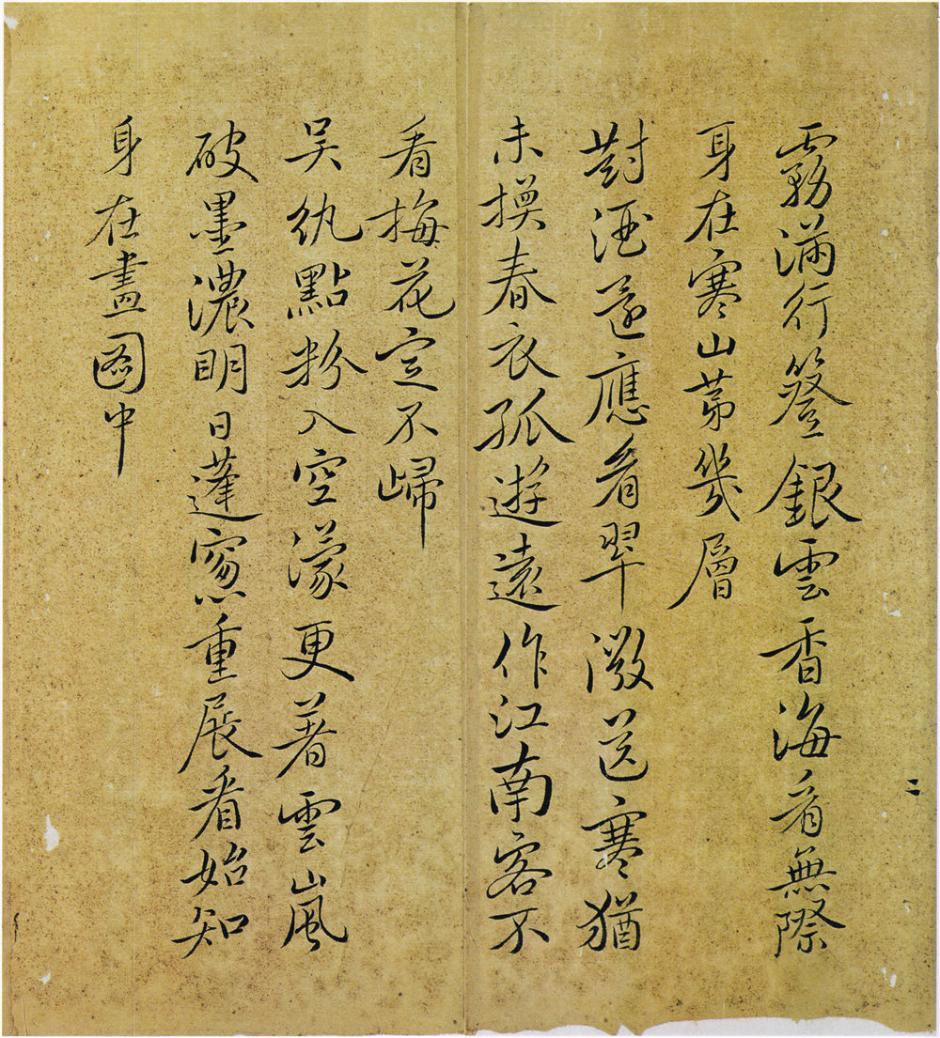 二
霧滿行簦銀雲香海看無際
身在寒山第幾層
對酒還應看翠微送寒猶
未換春衣孤遊遠作江南客不
看梅花定不歸
吳紈點粉入空濛更著雲嵐
破墨濃明日蓬窻重展看始知
身在畫圖中